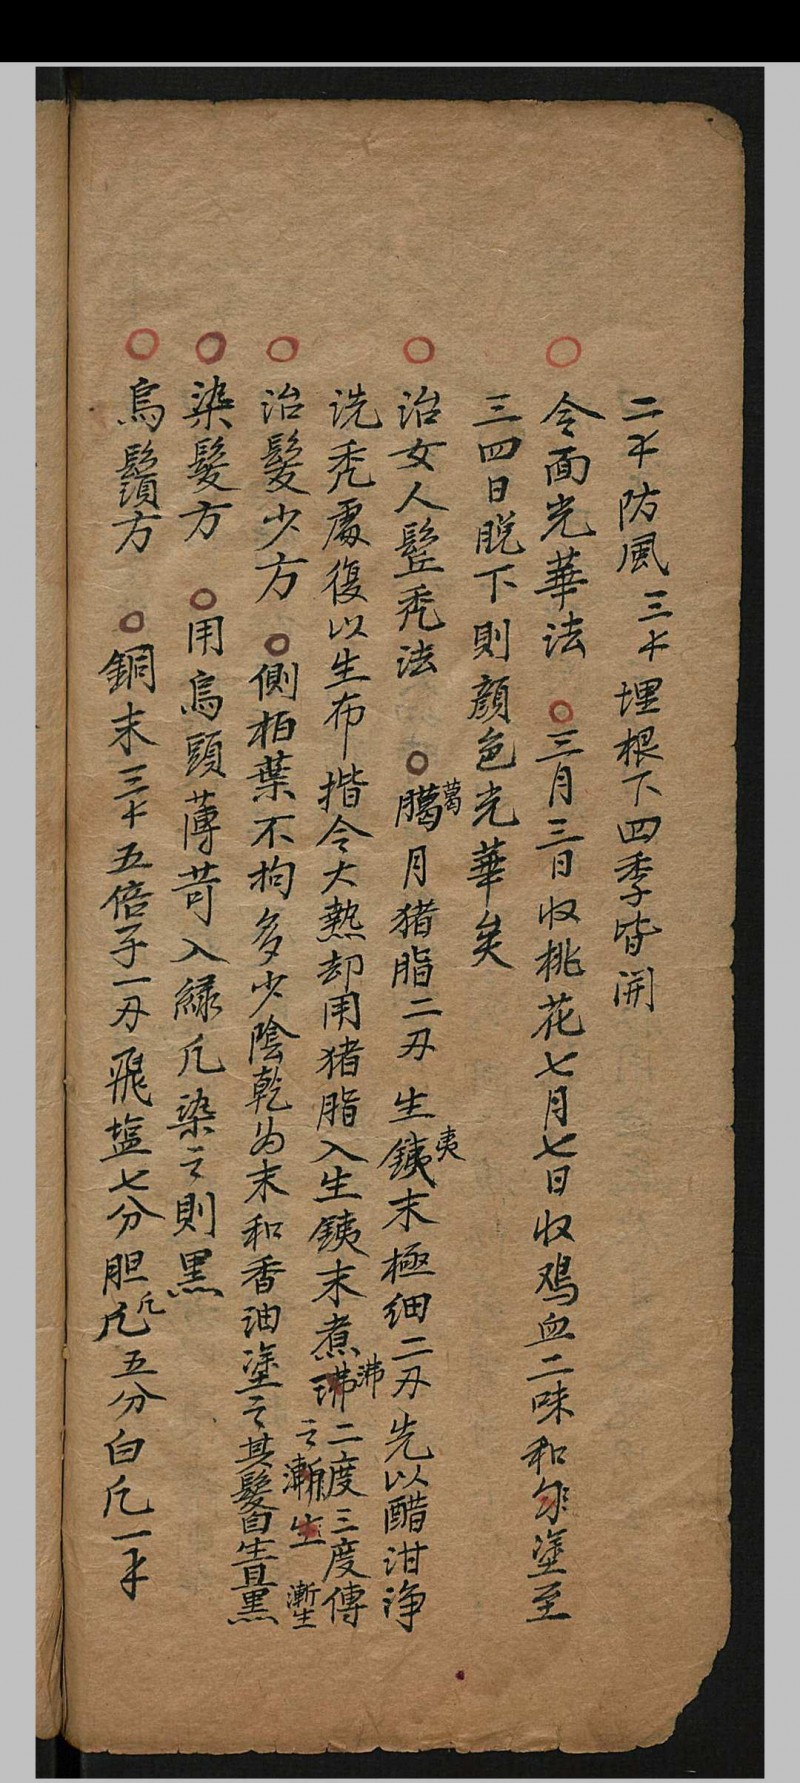 防風三 埋根下四季皆開
令面光華法 三月三日收桃花七月七日收鸡血二味和匀塗至
三四日脫下則顔色光華矣
治女人鬓秃法 臈月猪脂二刄 生銕末極細二刄先以醋泔诤
葛
夷
洗秃處復以生布揩令大熱却用猪脂入生銕末煮沸二度三度傳
沸
之漸生
漸生
治髮少方 側柏葉不拘多少陰乾为末和香油塗之其髮自生且黒
染髮方 用烏頭薄苛入緑凡染之則黒
烏鬚方 銅末三 五倍子一刄飛塩七分胆凡五分白凡一